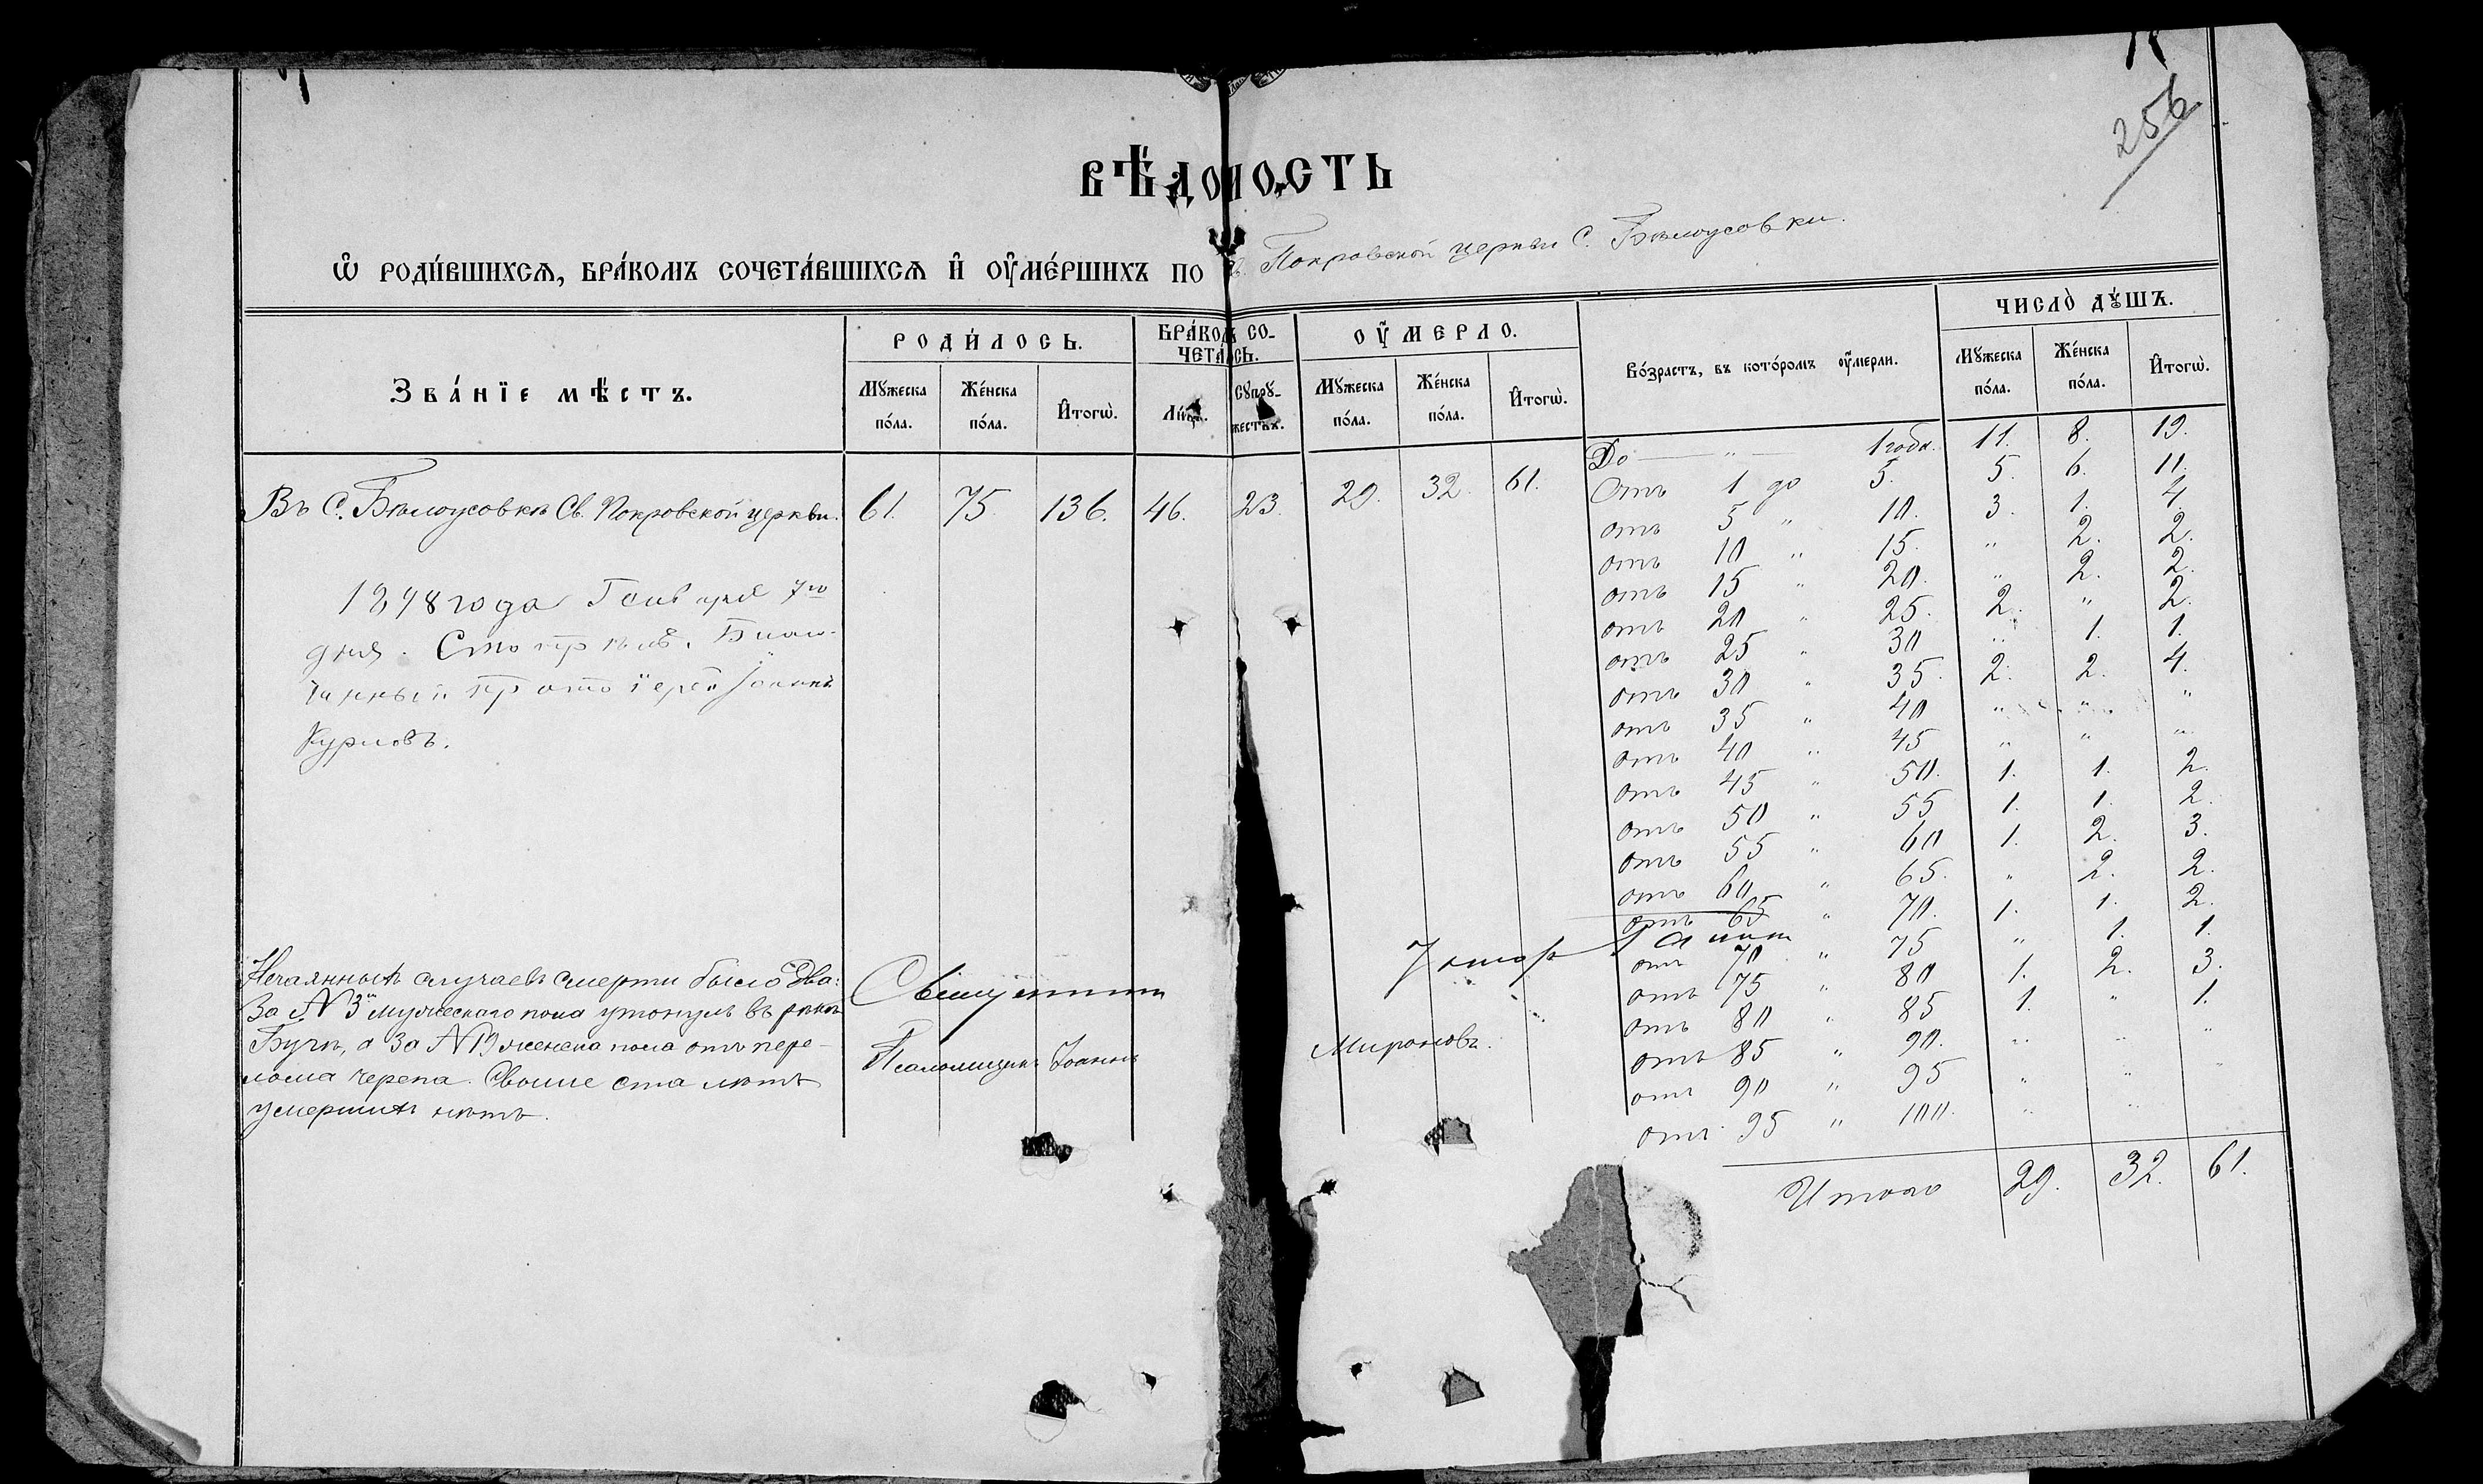 256
вѣдомость
ѡ родившихсѧ, бракомъ сочетавшихсѧ и оумершихъ по Покровской церкви С. Бѣлоусовки.
Званїе мѣстъ.
Родилось.
Бракомъ сочетались.
Оумерло.
Возрастъ, въ которомъ оумерли.
Число душъ.
Мужеска пола. Женска пола. Итогѡ.
Лицъ. Супружествъ.
Мужеска пола. Женска пола. Итогѡ.
Мужеска пола. Женска пола. Итогѡ.
Въ С. Бѣлоусовкѣ Св. Покровской церкви. 61. 75. 136. 46. 23. 29. 32. 61.
До „ 1 года. 11. 8. 19.
Отъ 1 до 5. 5. 6. 11.
отъ 5 „ 10. 3. 1. 4.
отъ 10 „ 15. „ 2. 2.
отъ 15 „ 20. „ 2. 2.
отъ 20 „ 25. 2. „ 2.
отъ 25 „ 30 „ 1. 1.
отъ 30 „ 35. 2. 2. 4.
отъ 35 „ 40 „ „ „
отъ 40 „ 45 „ „ „
отъ 45 „ 50. 1. 1. 2.
отъ 50 „ 55 1. 1. 2.
отъ 55 „ 60 1. 2. 3.
отъ 60 „ 65. „ 2. 2.
отъ 65 „ 70. 1. 1. 2.
отъ 70 „ 75 „ 1. 1.
отъ 75 „ 80 1. 2. 3.
отъ 80 „ 85 1. „ 1.
отъ 85 „ 90. „ „ „
отъ 90 „ 95 „ „ „
отъ 95 „ 100. „ „
Итого 29. 32. 61.
1898 года Генваря 7го
дня. Смотрѣлъ. Благо-
чинный протоіерей Іоаннъ
Курловъ.
Нечаянныхъ случаевъ смерти было два:
За N 3й мужескаго пола утонулъ въ рѣкѣ
Бугѣ, а за N 19 женска пола отъ пере-
лома черепа. Свыше ста лѣтъ
умершихъ нѣтъ.
Священникъ
Псаломщикъ Іоаннъ Мироновъ.